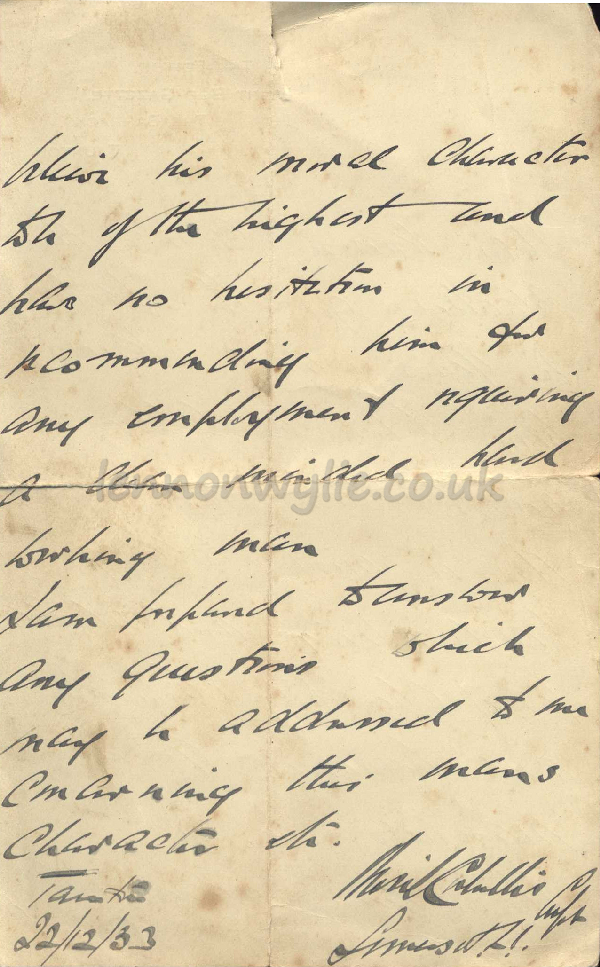 believe his moral character
to be of the highest and
have no hesitation in
recommending him for
any employment requiring
a clean minded hard
lennonwylie.co.uk
working man
I am prepared to answer
any questions which
may be addressed to me
concerning this mans
character etc.
Capt
22/12/33
Somerset L.I.